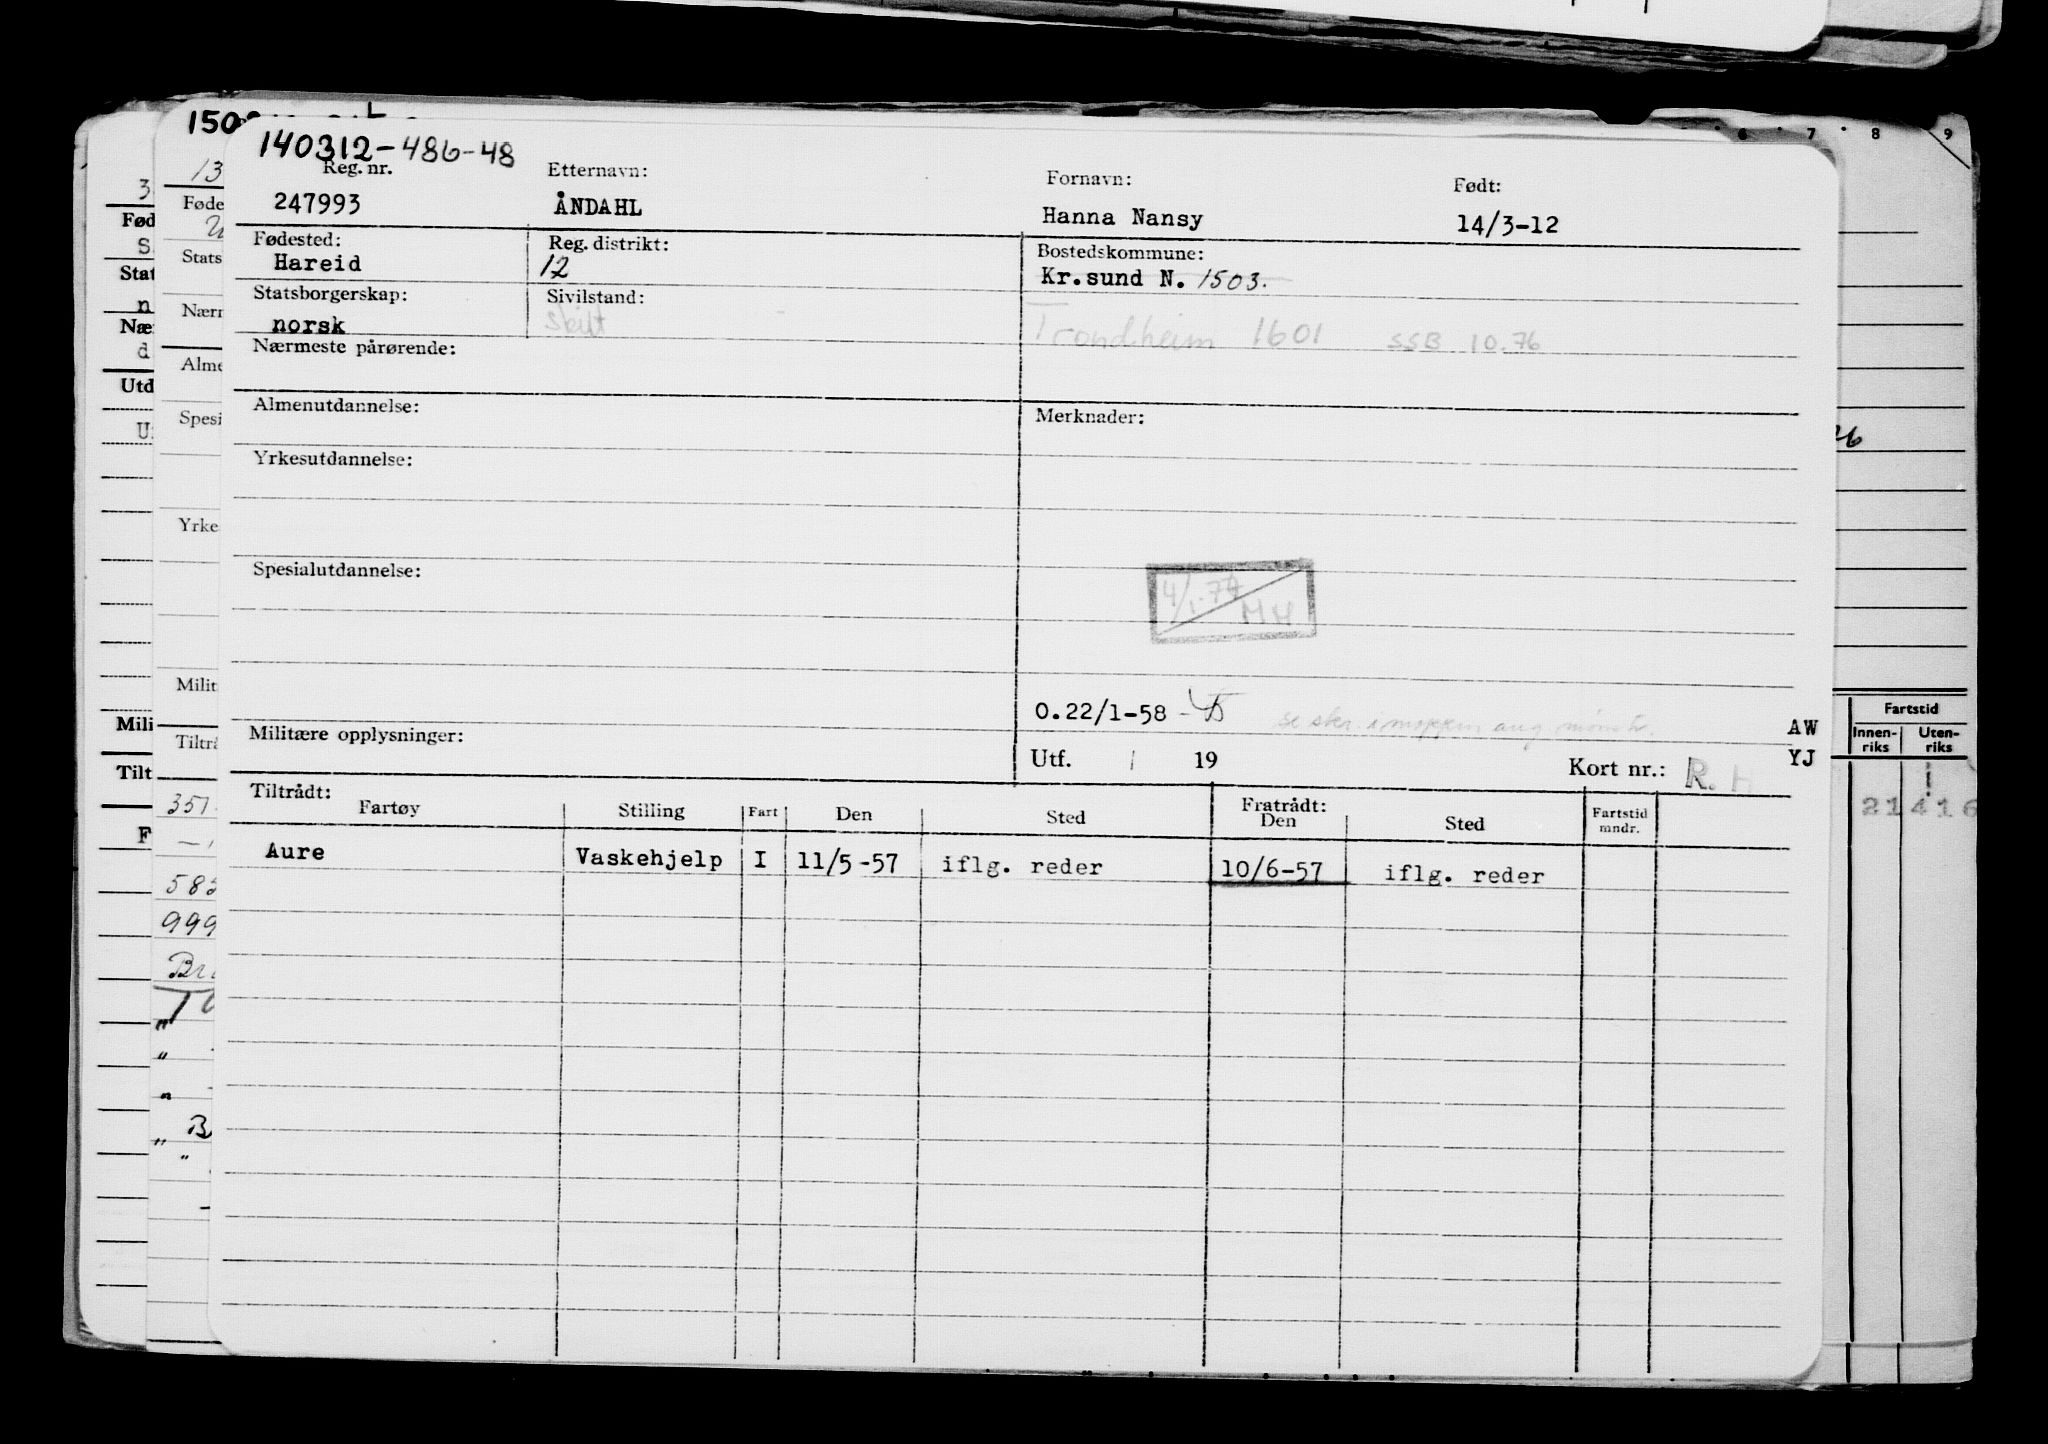 6 7 8 9
150
140312-486-48
Reg. nr. Etternavn: Fornavn: Født:
247993 ÅNDAHL Hanna Nansy 14/3-12
Fødested: Reg. distrikt: Bostedskommune:
Hareid 12 Kr.sund N. 1503.
Statsborgerskap: Sivilstand:
norsk Skilt Trondheim 1601 SSB 10.76
Nærmeste pårørende:
Almenutdannelse: Merknader:
Yrkesutdannelse:
Spesialutdannelse:
4/1.74 MH
O.22/1-58
AW
Militære opplysninger: Utf. / 19 Kort nr.: R. H YJ
Tiltrådt: Fratrådt:
Fartøy Stilling Fart Den Sted Den Sted Fartstid mndr.
Aure Vaskehjelp I 11/5-57 iflg. reder 10/6-57 iflg. reder
Fartstid
Innen-riks Uten-riks
21416
13
Føde
Stats
Nærn
Alme
Spesi
Yrke
Milit
Tiltrå
351
583
999
Fød
S
Stat
n
Næ
d
Utd
U
Mili
Tilt
F